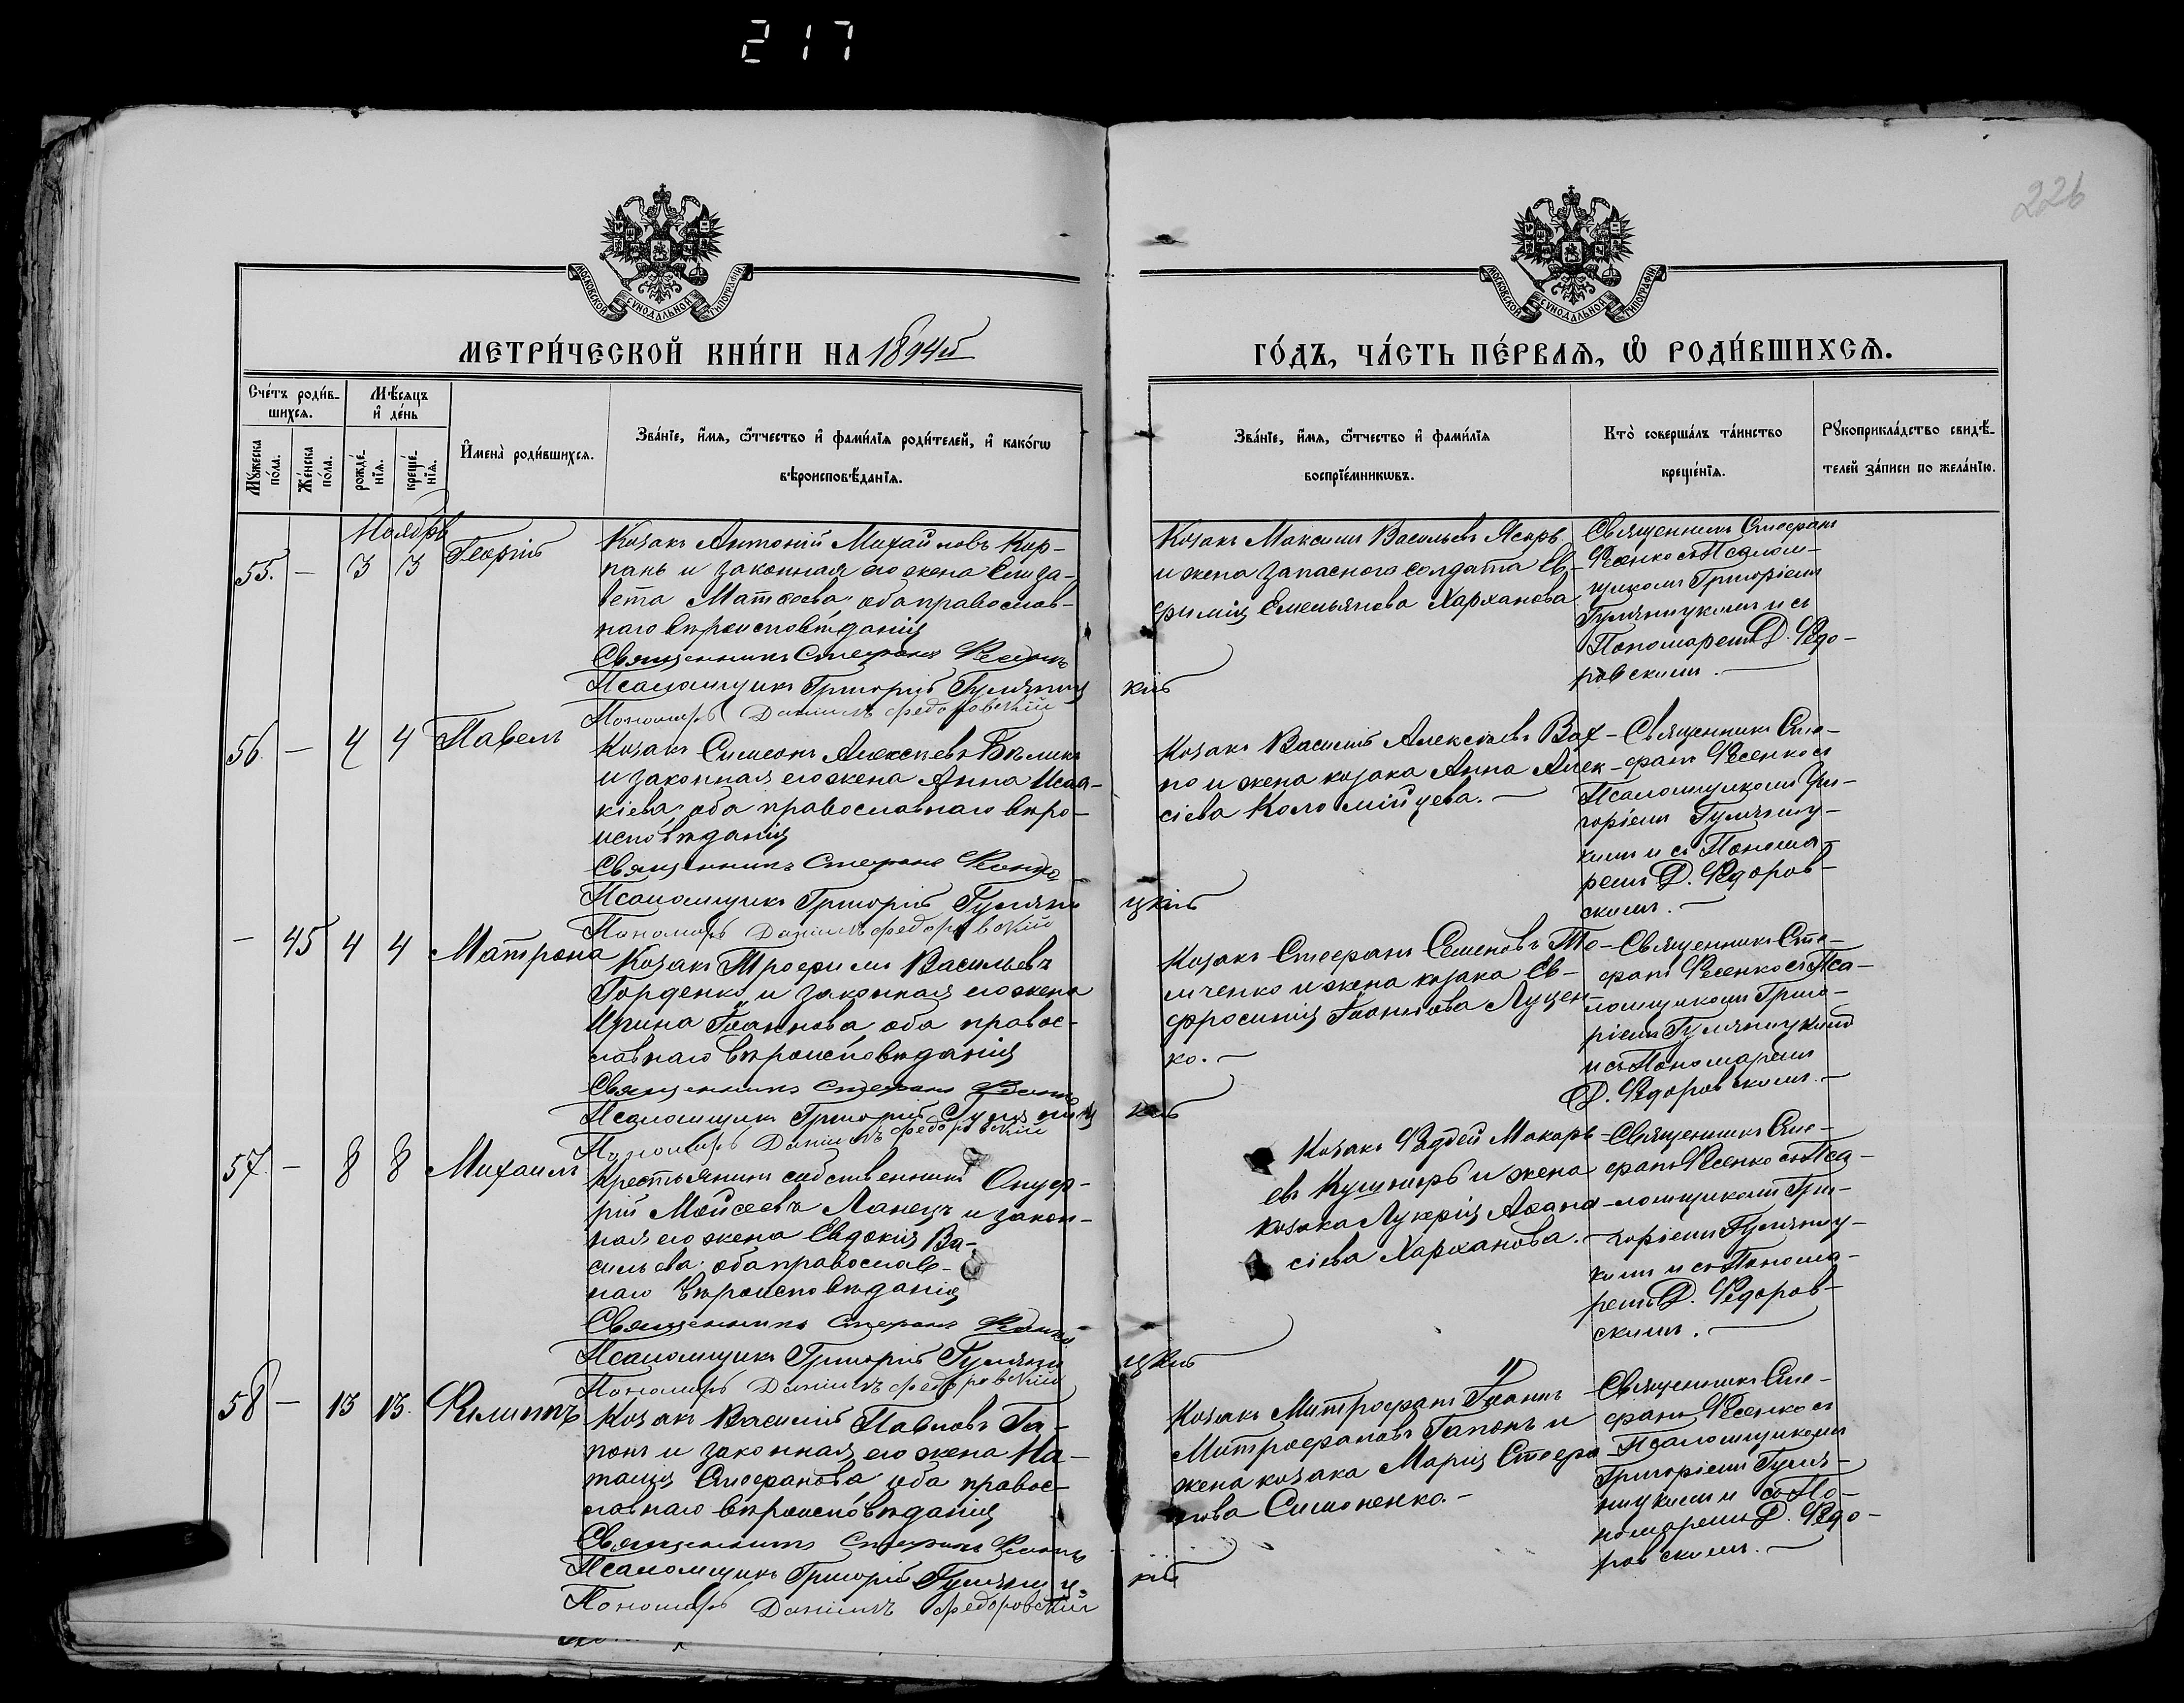 217
226
МОСКОВСКОЙ СѴНОДАЛЬНОЙ ТИПОГРАФІИ
МОСКОВСКОЙ СѴНОДАЛЬНОЙ ТИПОГРАФІИ
МЕТРИ́ЧЕСКОЙ КНИ́ГИ НА 1894й
ГО́ДЪ, ЧА́СТЬ ПЕ́РВАѦ, Ѡ РОДИ́ВШИХСѦ.
Сче́тъ роди́в-
шихсѧ.
Мꙋ́жеска по́ла.
Же́нска по́ла.
Мѣ́сѧцъ
и҆ де́нь
рожде́-
нїѧ.
креще́-
нїѧ.
И҆мена̀ роди́вшихсѧ.
Зва́нїе, и҆́мѧ, ѻ҆́тчество и҆ фами́лїѧ роди́телей, и҆ како́гѡ
вѣроисповѣ́данїѧ.
Зва́нїе, и҆́мѧ, ѻ҆́тчество и҆ фами́лїѧ
воспрїе́мникѡвъ.
Кто̀ соверша́лъ та́инство
креще́нїѧ.
Рꙋкоприкла́дство свидѣ́-
телей за́писи по жела́нїю.
Ноябрь
55. — 3 3 Георгій
Козакъ Антоній Михайловъ Кор-
пань и законная его жена Елиза-
вета Матѳеева, оба православ-
наго вѣроисповѣданія
Священникъ Стефанъ
Псаломщикъ Григорій Гуляниц
кій
Пономарь Даніилъ Федоровскій
Козакъ Максимъ Васильевъ
и жена запаснаго солдата Ев-
фимія Емельянова Харханова
Священникъ Стефанъ
Фесенко съ Псалом-
щикомъ Григоріемъ
Гуляницкимъ и съ
Пономаремъ Д. Федо-
ровскимъ.
56 — 4 4 Павелъ
Козакъ Симеонъ Алексѣевъ Бѣликъ
и законная его жена Анна Исаа-
кіева, оба православнаго вѣро-
исповѣданія
Священникъ Стефанъ
Псаломщикъ Григорій Гуляни
цкій
Пономарь Даніилъ Федоровскій
Козакъ Василій Алексѣевъ Вах-
но и жена козака Анна Алек-
сіева Коломійцева.
Священникъ Сте-
фанъ Фесенко съ
Псаломщикомъ Гри-
горіемъ Гуляниц-
кимъ и съ Понома-
ремъ Д. Федоров-
скимъ.
— 45 4 4 Матрона
Козакъ Трофимъ Васильевъ
Горденко и законная его жена
Ирина Іоаннова, оба правос-
лавнаго вѣроисповѣданія
Священникъ Стефанъ
Псаломщикъ Григорій Гуляниц
кій
Пономарь Даніилъ Федоровскій
Козакъ Стефанъ Семеновъ То-
мченко и жена козака Ев-
фросинія Іоаннова Луцен-
ко.
Священникъ Сте-
фанъ Фесенко съ Пса-
ломщикомъ Григо-
ріемъ Гуляницкимъ
и съ Пономаремъ
Д. Федоровскимъ.
57. — 8 8 Михаилъ
Крестьянинъ собственникъ Онуф-
рій Мойсеевъ Ланецъ и закон-
ная его жена Евдокія Ва-
сильева, оба православ-
наго вѣроисповѣданія
Священникъ Стефанъ
Псаломщикъ Григорій Гуляни
цкій
Пономарь Даніилъ Федоровскій
Козакъ Фадей Макарь-
евъ Кушниръ и жена
козака Лукерія Аѳана-
сіева Харханова.
Священникъ Сте-
фанъ Фесенко съ Пса-
ломщикомъ Гри-
горіемъ Гуляниц-
кимъ и съ Понома-
ремъ Д. Федоров-
скимъ.
58 — 13 13. Филиппъ
Козакъ Василій Павловъ Га-
понъ и законная его жена На-
талія Стефанова, оба правос-
лавнаго вѣроисповѣданія
Священникъ Стефанъ
Псаломщикъ Григорій Гуляниц
кій
Пономарь Даніилъ Федоровскій
Козакъ Митрофанъ Іоаннъ
Митрофановъ Гапонъ и
жена козака Марія Стефа-
нова Симоненко.
Священникъ Сте-
фанъ Фесенко съ
Псаломщикомъ
Григоріемъ Гуля-
ницкимъ и съ По-
номаремъ Д. Федо-
ровскимъ.